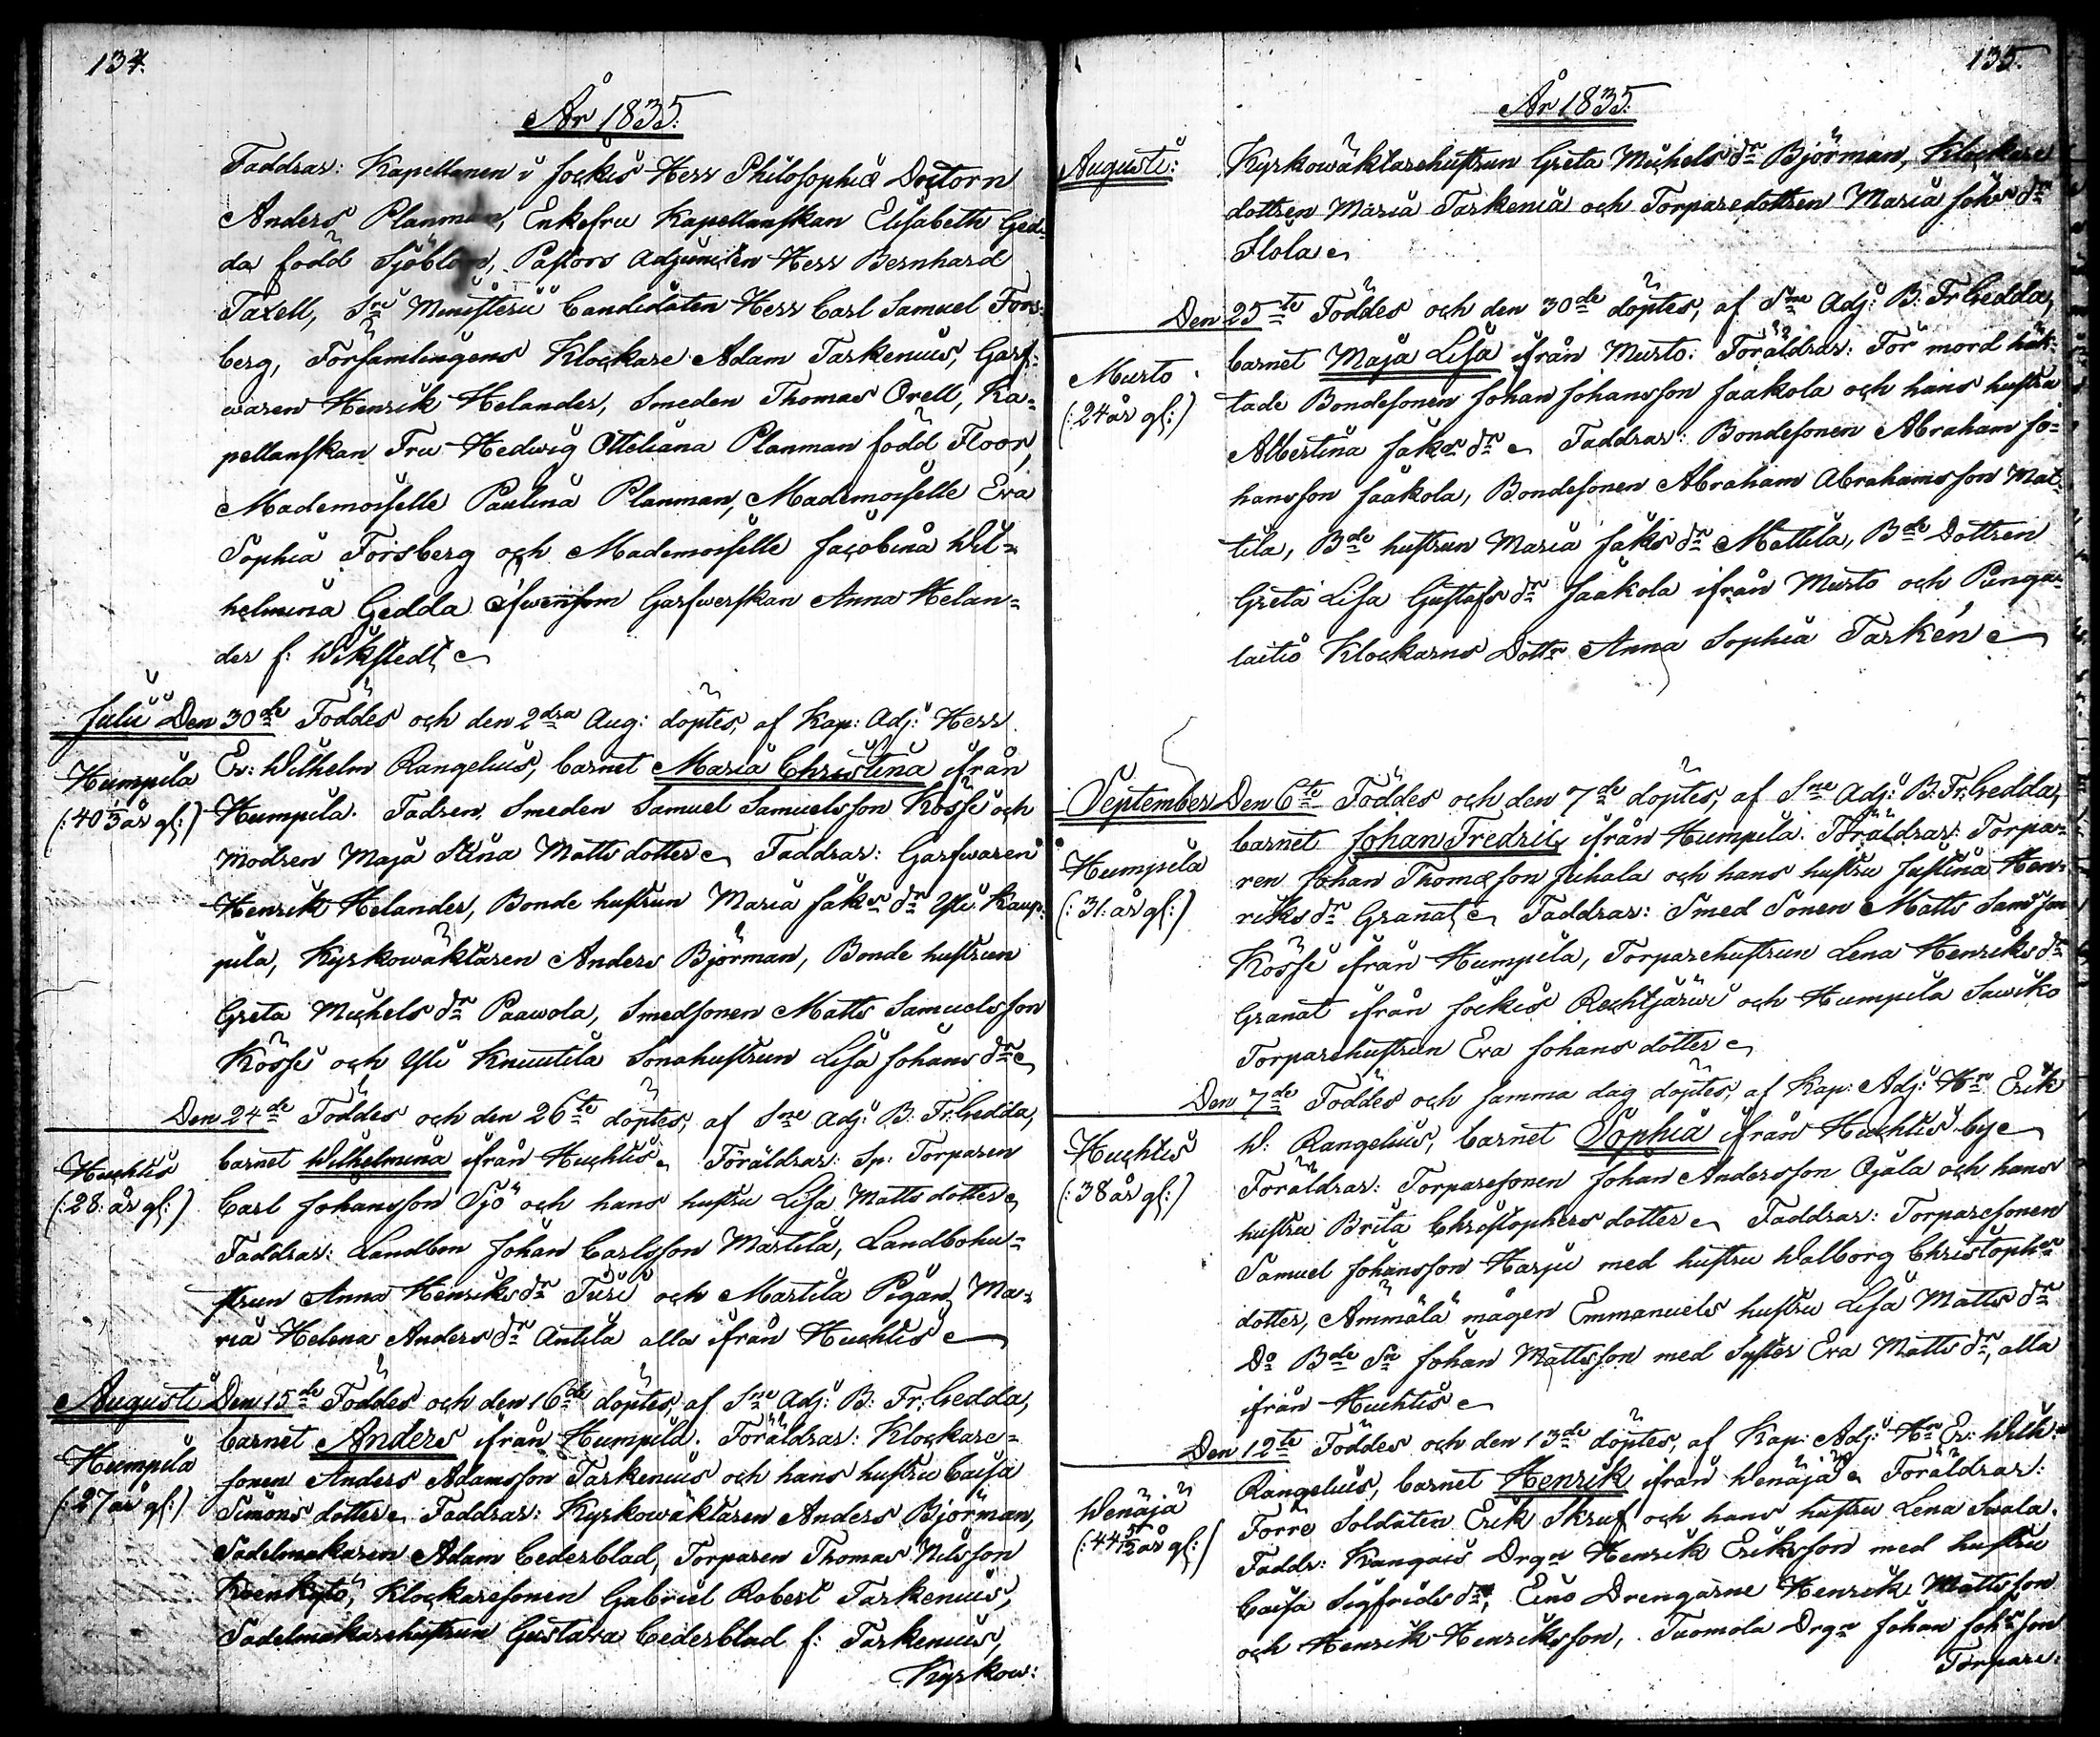 134.
År 1835.
Faddrar: Kapellanen i Jockis Herr Philosophiæ Doctorn
Anders Planman, Enkefru Kapellanskan Elisabeth Ged=
da född Sjöblom, Pastors Adjuncten Herr Bernhard
Taxell, Sri Ministerii Candidaten Herr Carl Samuel Fors=
berg, Församlingens Klockare Adam Tarkenius, Garf=
waren Henrik Helander, Smeden Thomas Orell, Ka=
pellanskan Fru Hedwig Otteliana Planman född Floor,
Mademoiselle Paulina Planman, Mademoiselle Eva
Sophia Forsberg och Mademoiselle Jacobina Wil=
helmina Gedda äfwensom Garfwerskan Anna Helan=
der f: Wikstedt
Julii Den 30de Föddes och den 2dra Aug: döptes, af Kap: Adj: Herr
Humpila Er: Wilhelm Rangelius, barnet Maria Christina ifrån
(:40 1/3 år gl:) Humpila. Fadren, Smeden Samuel Samuelsson Kösse och
Modren Maja Stina Matts dotter Faddrar: Garfwaren
Henrik Helander, Bonde hustrun Maria Jaks dr Yli Kaup=
pila, Kyrkowäktaren Anders Björman, Bonde hustrun
Greta Michels dr Paawola, Smedsonen Matts Samuelsson
Kösse och Yli Knuutila Sonahustrun Lisa Johans dr
Den 24de Föddes och den 26te döptes, af Sne Adj: B: Fr: Gedda,
Huchtis barnet Wilhelmina ifrån Huchtis Föräldrar: Sp: Torparen
(:28: år gl:) Carl Johansson Sjö och hans hustru Lisa Matts dotter
Faddrar: Landbon Johan Carlsson Martila, Landbohu=
strun Anna Henriks dr Turi och Martila Pigan Ma=
ria Helena Anders dr Antila alla ifrån Huchtis
Augusti Den 15de Föddes och den 16de döptes, af Sne Adj: B: Fr: Gedda,
Humpila barnet Anders ifrån Humpila. Föräldrar: Klockare=
sonen Anders Adamsson Tarkenius och hans hustru Caisa
(:27 år gl:) Simons dotter Faddrar: Kyrkowäktaren Anders Björman,
Sadelmakaren Adam Cederblad, Torparen Thomas Nilsson
Klockaresonen Gabriel Robert Tarkenius,
Sadelmakarehustrun Gustava Cederblad f: Tarkenius,
Kyrkow:
135.
År 1835.
Augusti: Kyrkowäktarehustrun Greta Michels dr Björman, Klockare
dottren Maria Tarkenia och Torparedottren Maria Johs dr
Flola
Den 25te Föddes och den 30de döptes, af Sne Adj: B: Fr Gedda,
Murto barnet Maja Lisa ifrån Murto: Föräldrar: För mord häk=
(:24 år gl:) tade Bondesonen Johan Johansson Jaakola och hans hustru
Albertina Jaks dr Faddrar: Bondesonen Abraham Jo=
hansson Jaakola, Bondesonen Abraham Abrahamsson Mat=
tila, Bde hustrun Maria Jaks dr Mattila, Bde Dottren
Greta Lisa Gustafs dr Jaakola ifrån Murto och Punga=
laitio Klockarns Dottr Anna Sophia Tarkén
September Den 6te Föddes och den 7de döptes, af Sne Adj: B: Fr: Gedda,
Humpila barnet Johan Fredric, ifrån Humpila. Föräldrar: Torpa=
(:31: år gl:) ren Johan Thomæson Juhala och hans hustru Justina Hen=
riks dr Granat Faddrar: Smed Sonen Matts Sams son
Kösse ifrån Humpila, Torparehustrun Lena Henriks dr
Granat ifrån Jockis Rechtijärwi och Humpila Sawiko
Torparehustrun Eva Johans dotter
Den 7de Föddes och samma dag döptes, af Kap: Adj: Hrr Erik
Huchtis W: Rangelius, barnet Sophia ifrån Huchtis by
(:38 år gl:) Föräldrar: Torparesonen Johan Andersson Ojala och hans
hustru Brita Christophers dotter Faddrar: Torparesonen
Samuel Johansson Harju med hustru Walborg Christophs
dotter, Ammälä mågen Emmanuels hustru Lisa Matts dr
Do Bde Sn Johan Mattsson med Syster Eva Matts dr, alla
ifrån Huchtis
Den 12te Föddes och den 13de döptes, af Kap: Adj: Hrr Er: Wilh:
Wenäjä Rangelius, barnet Henrik ifrån Wenäjä Föräldrar:
(:44 5/12 år gl:) Förre Soldaten Erik Skruf och hans hustru Lena Swala.
Faddr: Kangais Drgn Henrik Eriksson med hustru
Caisa Sigfrids dr, Eino Drengarne Henrik Mattsson
och Henrik Henriksson, Tuomola Drgn Johan Johs son
Torpare: